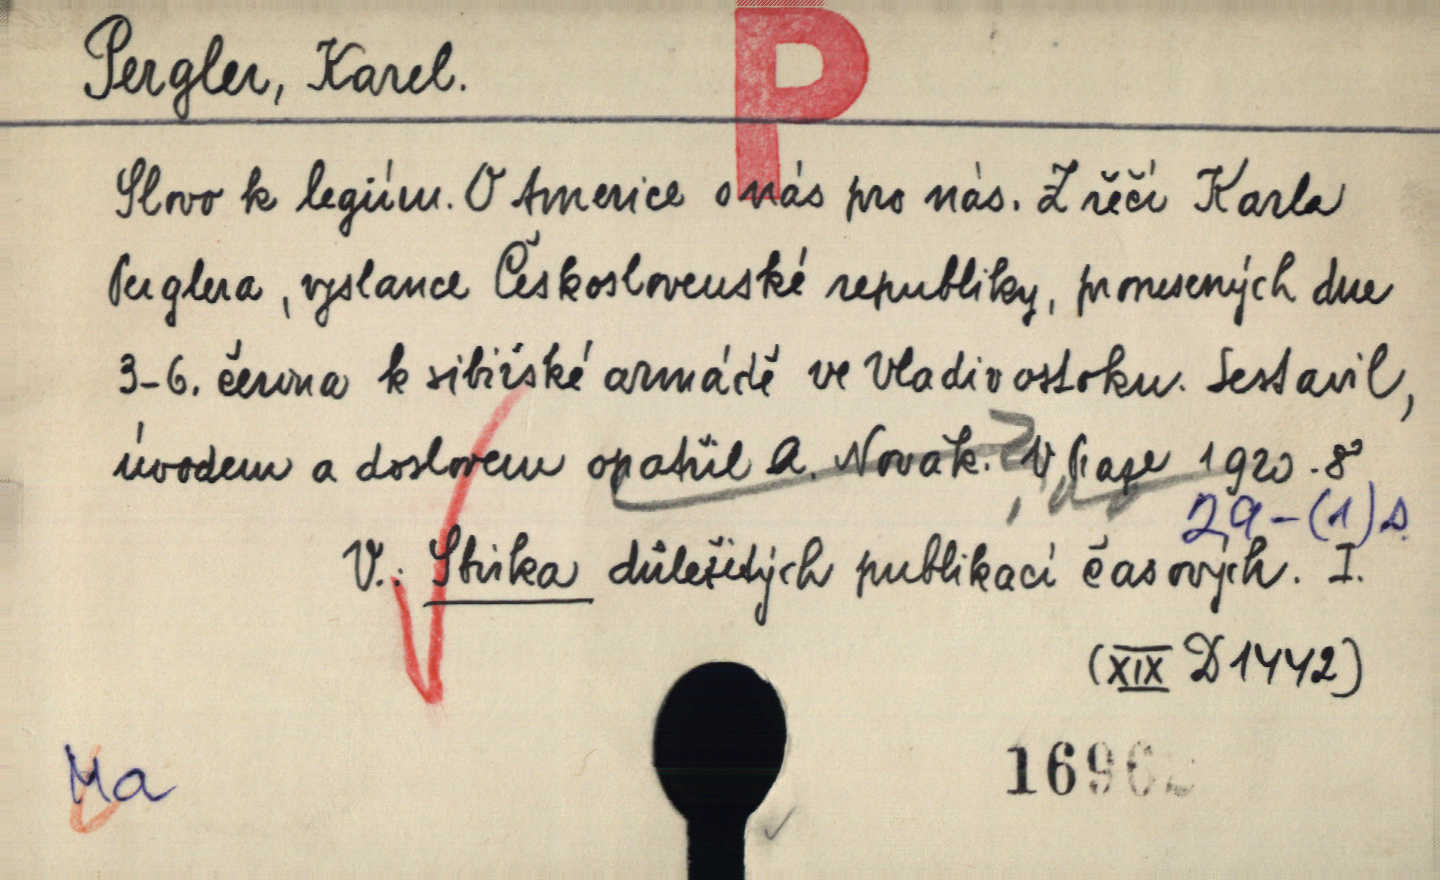 P
Pergler, Karel.
Slovo k legiím. O Americe o nás pro nás. Z řěčí Karla
Perglera, vyslance Československé republiky, pronesených dne
3-6. června k sibiřské armádě ve Vladivostoku. Sestavil,
úvodem a doslovem opatřil A. Novák. V Praze 1920. 8°
29-(1) s.
V.: Sbírka důležitých publikací časových. I.
(XIX D 1442)
Ma
1696